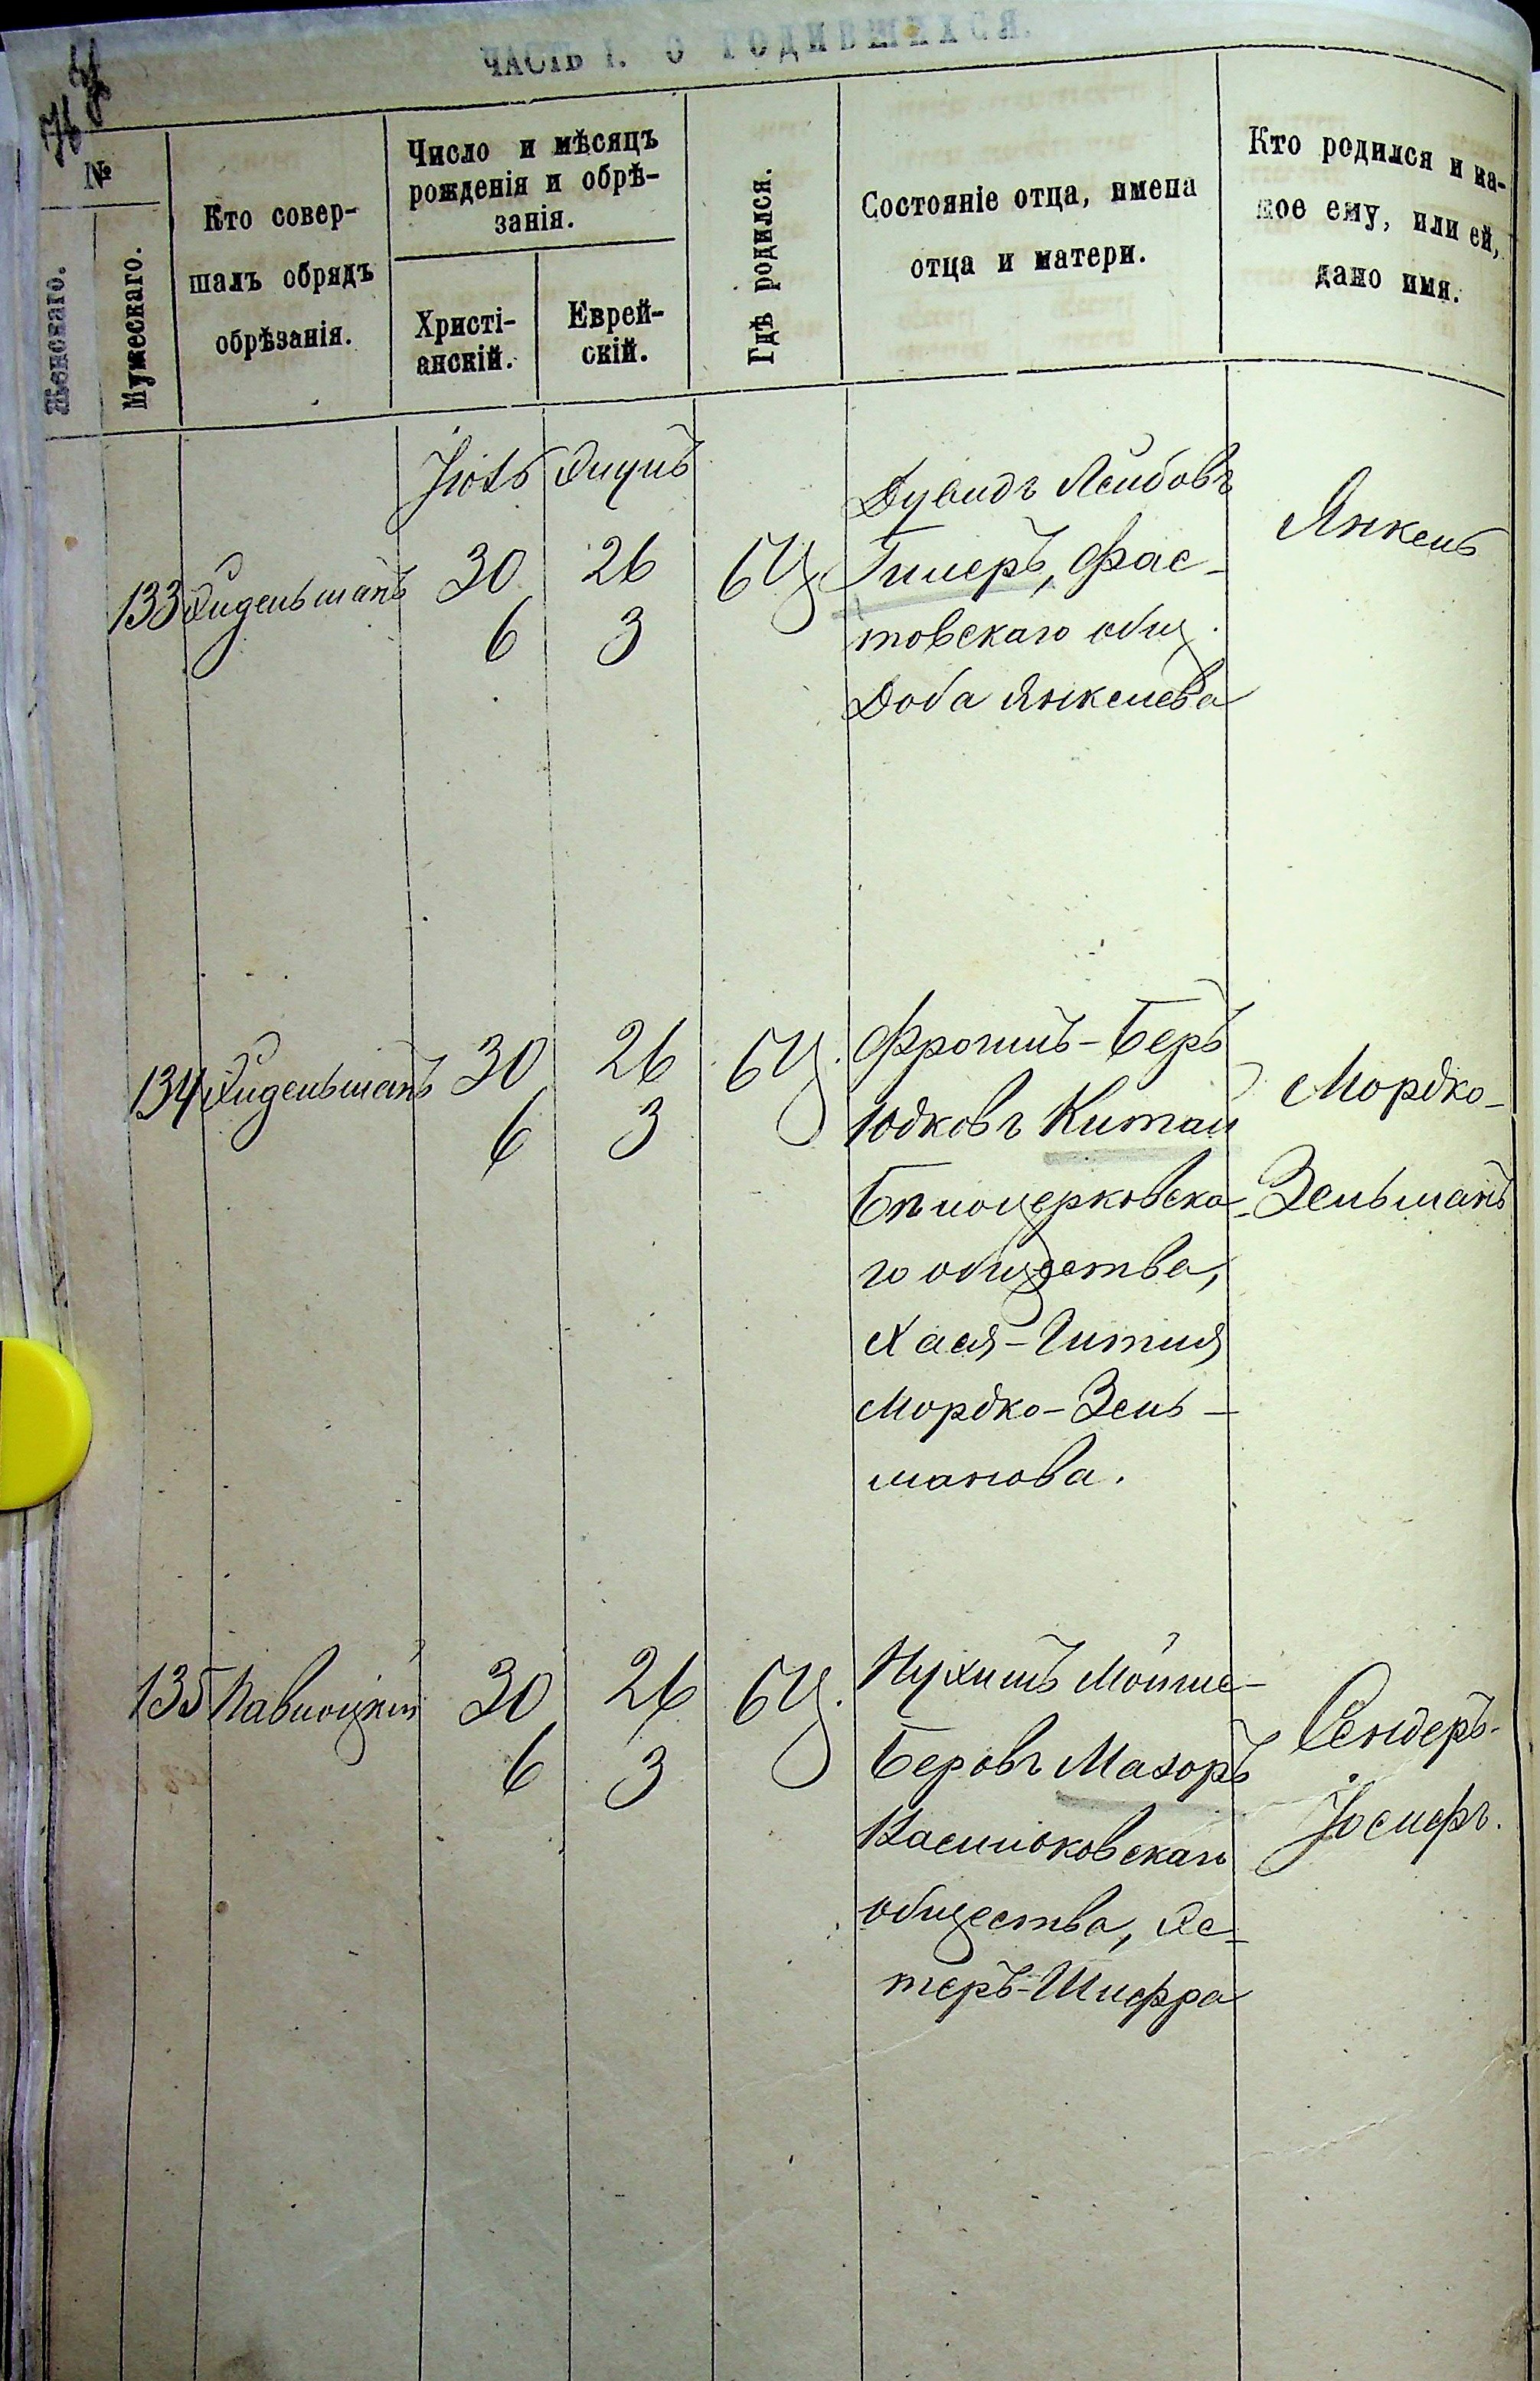 ЧАСТЬ I. О РОДИВШИХСЯ.
№
Женскаго.
Мужескаго.
Кто совер-
шалъ обрядъ
обрѣзанія.
Число и мѣсяцъ
рожденія и обрѣ-
занія.
Христі-
анскій.
Еврей-
скій.
Гдѣ родился.
Состояніе отца, имена
отца и матери.
Кто родился и ка-
кое ему, или ей,
дано имя.
Іюль
133
30 26
6 3
БЦ
Дувидъ Лейбовъ
Гилеръ, Фас-
товскаго общ.
Доба Янкелева
Янкель
134
30 26
6 3
БЦ.
Фроимъ-Беръ
Юдковъ Китай
Бѣлоцерковска-
го общества,
Хася-Гитля
Мордко-Зель-
манова.
Мордко-
Зельманъ
135 Павлоцкій
30 26
6 3
БЦ.
Нухимъ Мойше-
Беровъ Мазоръ
Васильковскаго
общества, Эс-
теръ-Шифра
Сендеръ-
Іосифъ.